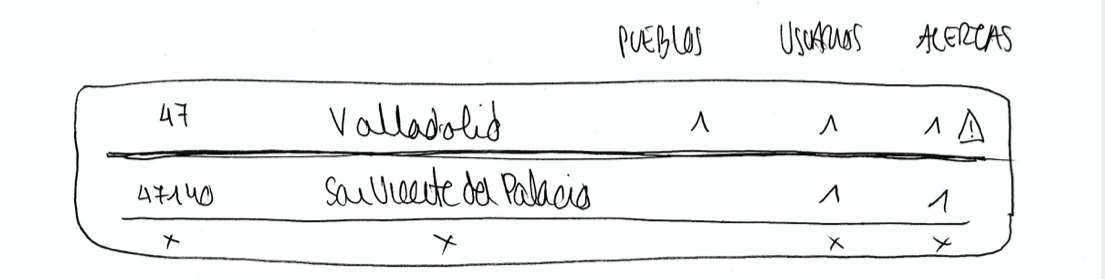 PUEBLOS USUARIOS ACERCAS
47 Valladolid 1 1 1 ⚠
47140 San Vicente del Palacio 1 1
x x x x